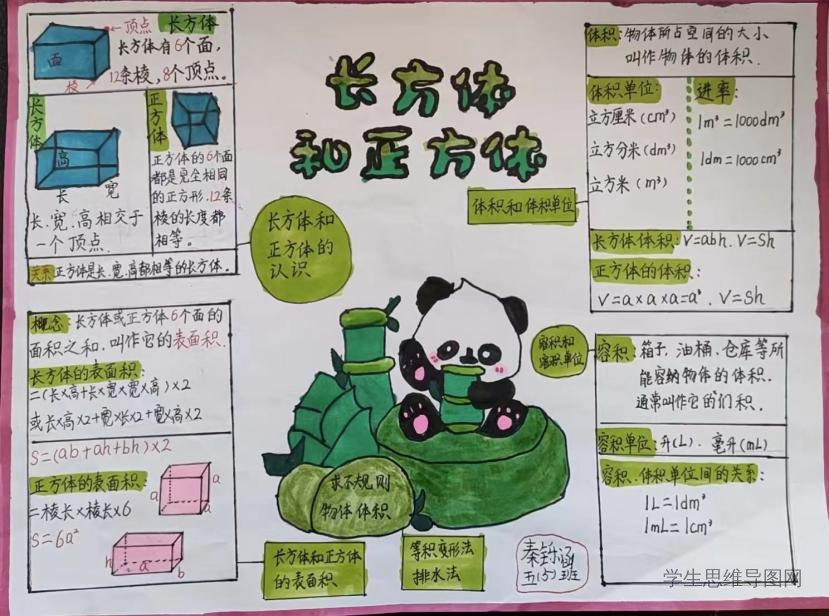 长方体
和正方体
顶点
长方体
长方体有6个面,
12条棱,8个顶点。
面
棱
长方体
高
长
宽
长、宽、高相交于
一个顶点.
正方体
正方体的6个面
都是完全相同
的正方形.12条
棱的长度都
相等。
关系:正方体是长、宽、高都相等的长方体。
长方体和
正方体的
认识
概念:长方体或正方体6个面的
面积之和,叫作它的表面积.
长方体的表面积:
=(长×高+长×宽×宽×高)×2
或长×高×2+宽×长×2+宽×高×2
S=(ab+ah+bh)×2
正方体的表面积:
=棱长×棱长×6
S=6a²
a
a
a
h
a
b
长方体和正方体
的表面积
求不规则
物体体积
等积变形法
排水法
体积:物体所占空间的大小
叫作物体的体积.
体积单位:
立方厘米(cm³)
立方分米(dm³)
立方米(m³)
进率:
1m³=1000dm³
1dm=1000cm³
体积和体积单位
长方体体积:V=abh.V=Sh
正方体的体积:
V=a×a×a=a³.V=Sh
容积和
容积单位
容积:箱子,油桶、仓库等所
能容纳物体的体积.
通常叫作它的们积.
容积单位:升(L).毫升(mL)
容积、体积单位间的关系:
1L=1dm³
1mL=1cm³
秦铄涵
五(5)班
学生思维导图网